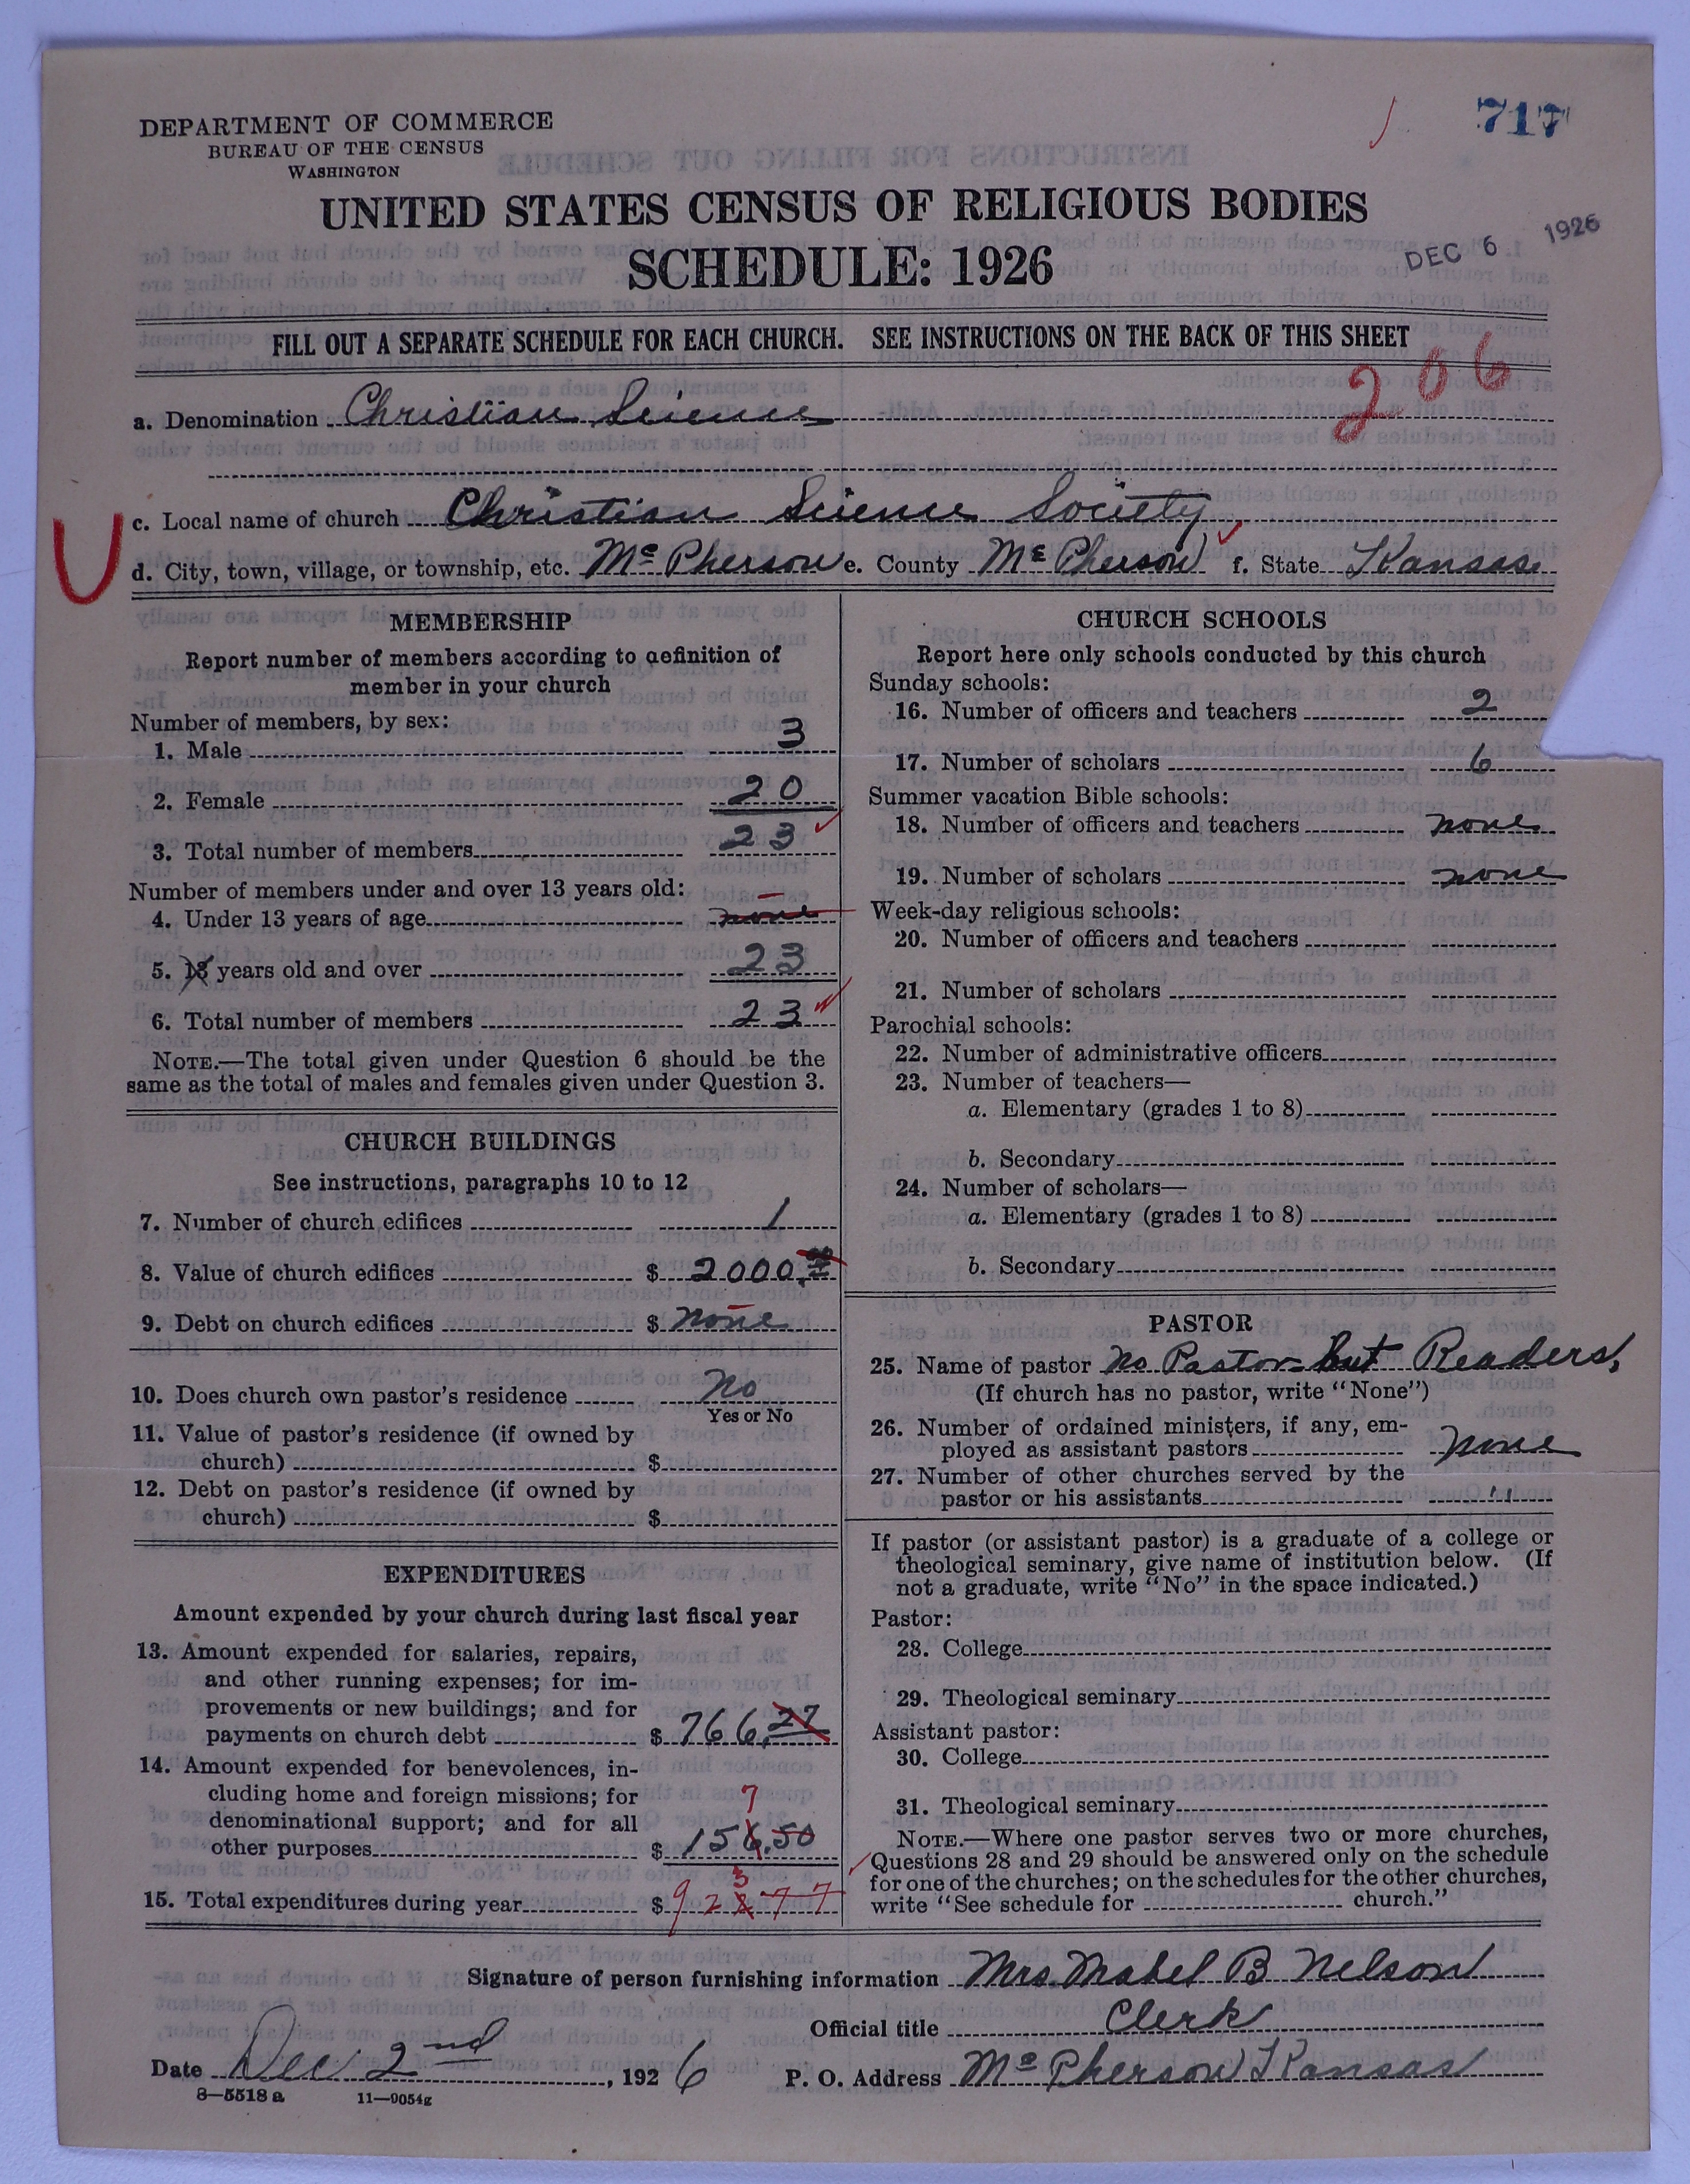 717
DEPARTMENT OF COMMERCE
BUREAU OF THE CENSUS
WASHINGTON
UNITED STATES CENSUS OF RELIGIOUS BODIES
SCHEDULE: 1926
DEC 6 1926
FILL OUT A SEPARATE SCHEDULE FOR EACH CHURCH. SEE INSTRUCTIONS ON THE BACK OF THIS SHEET
206
a. Denomination Christian Science
c. Local name of church Christian Science Society
U
d. City, town, village, or township, etc. McPherson e. County McPherson f. State Kansas
MEMBERSHIP
Report number of members according to definition of
member in your church
Number of members, by sex:
1. Male 3
2. Female 20
3. Total number of members 23
Number of members under and over 13 years old:
4. Under 13 years of age none
5. 13 years old and over 23
6. Total number of members 23
NOTE.—The total given under Question 6 should be the
same as the total of males and females given under Question 3.
CHURCH BUILDINGS
See instructions, paragraphs 10 to 12
7. Number of church edifices 1
8. Value of church edifices $ 2000.00
9. Debt on church edifices $ none
10. Does church own pastor's residence No
Yes or No
11. Value of pastor's residence (if owned by
church) $
12. Debt on pastor's residence (if owned by
church) $
EXPENDITURES
Amount expended by your church during last fiscal year
13. Amount expended for salaries, repairs,
and other running expenses; for im-
provements or new buildings; and for
payments on church debt $ 766.27
14. Amount expended for benevolences, in-
cluding home and foreign missions; for
7
denominational support; and for all
other purposes $ 156.50
3
15. Total expenditures during year $ 922 77
CHURCH SCHOOLS
Report here only schools conducted by this church
Sunday schools:
16. Number of officers and teachers 2
17. Number of scholars 6
Summer vacation Bible schools:
18. Number of officers and teachers none
19. Number of scholars none
Week-day religious schools:
20. Number of officers and teachers
21. Number of scholars
Parochial schools:
22. Number of administrative officers
23. Number of teachers—
a. Elementary (grades 1 to 8)
b. Secondary
24. Number of scholars—
a. Elementary (grades 1 to 8)
b. Secondary
PASTOR
25. Name of pastor No Pastor - but Readers,
(If church has no pastor, write "None")
26. Number of ordained ministers, if any, em-
ployed as assistant pastors none
27. Number of other churches served by the
pastor or his assistants "
If pastor (or assistant pastor) is a graduate of a college or
theological seminary, give name of institution below. (If
not a graduate, write "No" in the space indicated.)
Pastor:
28. College
29. Theological seminary
Assistant pastor:
30. College
31. Theological seminary
NOTE.—Where one pastor serves two or more churches,
Questions 28 and 29 should be answered only on the schedule
for one of the churches; on the schedules for the other churches,
write "See schedule for church."
Signature of person furnishing information Mrs. Mabel B Nelson
Official title Clerk
Date Dec 2nd, 1926 P. O. Address McPherson Kansas
8—5518 a 11—9054g